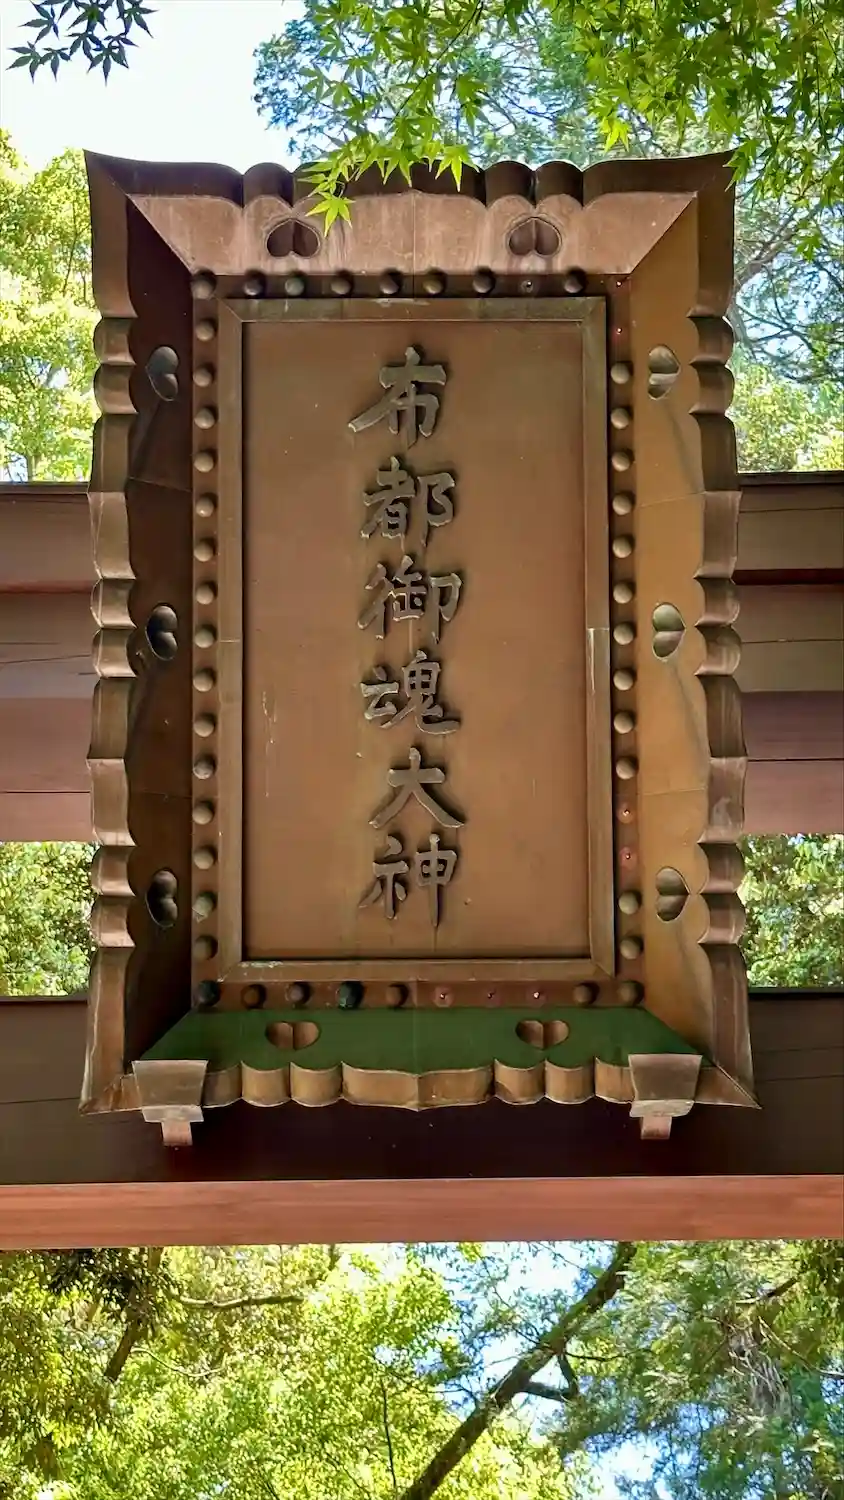 布都御魂大神